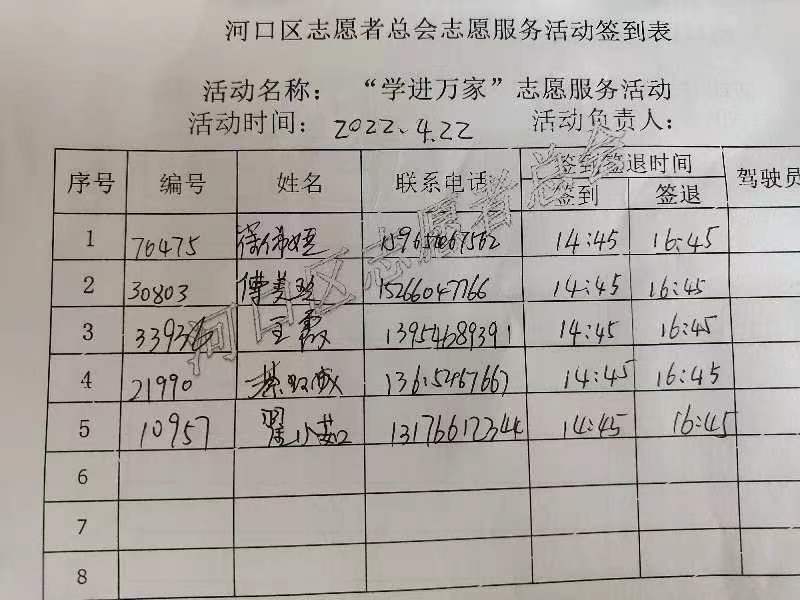 河口区志愿者总会志愿服务活动签到表
活动名称： “学进万家”志愿服务活动
活动时间： 2022.4.22 活动负责人：
序号 编号 姓名 联系电话 签到签退时间 驾驶员
签到 签退
1 76475 14:45 16:45
2 30803 傅美玲 15266047766 14:45 16:45
3 王霞 13954689391 14:45 16:45
4 21990 14:45 16:45
5 10957 翟小茹 13176617344 14:45 16:45
6
7
8
河口区志愿者总会